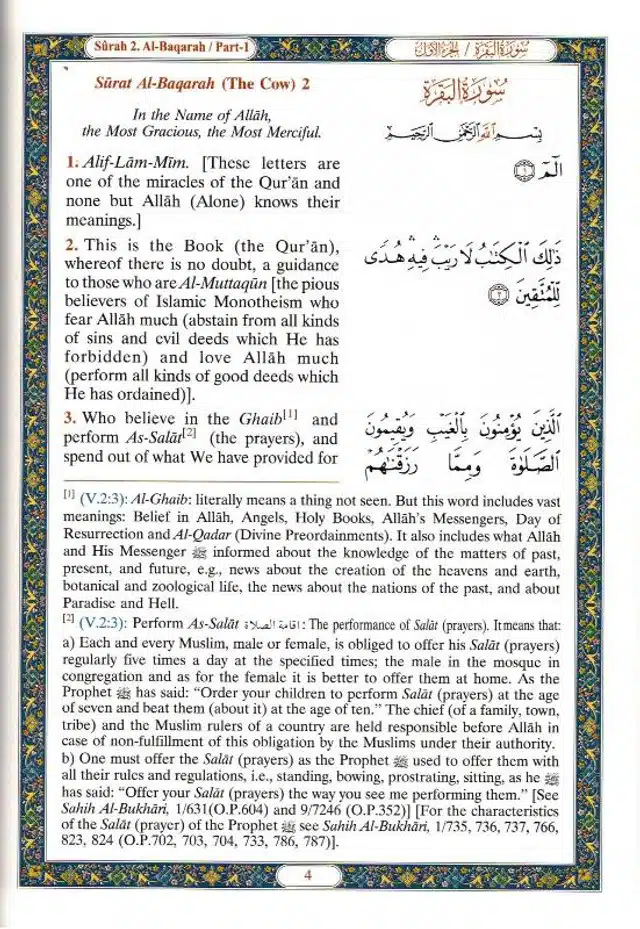 Sûrah 2. Al-Baqarah / Part-1
سُورَةُ الْبَقَرَة / الجُزءُ الأَوَّل
Sûrat Al-Baqarah (The Cow) 2
In the Name of Allâh,
the Most Gracious, the Most Merciful.
1. Alif-Lâm-Mîm. [These letters are
one of the miracles of the Qur'ân and
none but Allâh (Alone) knows their
meanings.]
2. This is the Book (the Qur'ân),
whereof there is no doubt, a guidance
to those who are Al-Muttaqûn [the pious
believers of Islamic Monotheism who
fear Allâh much (abstain from all kinds
of sins and evil deeds which He has
forbidden) and love Allâh much
(perform all kinds of good deeds which
He has ordained)].
3. Who believe in the Ghaib[1] and
perform As-Salât[2] (the prayers), and
spend out of what We have provided for
سُورَةُ الْبَقَرَة
بِسْمِ اللَّهِ الرَّحْمَٰنِ الرَّحِيمِ
الٓمٓ ١
ذَٰلِكَ الْكِتَٰبُ لَا رَيْبَ ۛ فِيهِ ۛ هُدًى
لِّلْمُتَّقِينَ ٢
الَّذِينَ يُؤْمِنُونَ بِالْغَيْبِ وَيُقِيمُونَ
الصَّلَوٰةَ وَمِمَّا رَزَقْنَٰهُمْ
[1] (V.2:3): Al-Ghaib: literally means a thing not seen. But this word includes vast
meanings: Belief in Allâh, Angels, Holy Books, Allâh's Messengers, Day of
Resurrection and Al-Qadar (Divine Preordainments). It also includes what Allâh
and His Messenger ﷺ informed about the knowledge of the matters of past,
present, and future, e.g., news about the creation of the heavens and earth,
botanical and zoological life, the news about the nations of the past, and about
Paradise and Hell.
[2] (V.2:3): Perform As-Salât اقامة الصلاة : The performance of Salât (prayers). It means that:
a) Each and every Muslim, male or female, is obliged to offer his Salât (prayers)
regularly five times a day at the specified times; the male in the mosque in
congregation and as for the female it is better to offer them at home. As the
Prophet ﷺ has said: "Order your children to perform Salât (prayers) at the age
of seven and beat them (about it) at the age of ten." The chief (of a family, town,
tribe) and the Muslim rulers of a country are held responsible before Allâh in
case of non-fulfillment of this obligation by the Muslims under their authority.
b) One must offer the Salât (prayers) as the Prophet ﷺ used to offer them with
all their rules and regulations, i.e., standing, bowing, prostrating, sitting, as he ﷺ
has said: "Offer your Salât (prayers) the way you see me performing them." [See
Sahih Al-Bukhâri, 1/631(O.P.604) and 9/7246 (O.P.352)] [For the characteristics
of the Salât (prayer) of the Prophet ﷺ see Sahih Al-Bukhâri, 1/735, 736, 737, 766,
823, 824 (O.P.702, 703, 704, 733, 786, 787)].
4